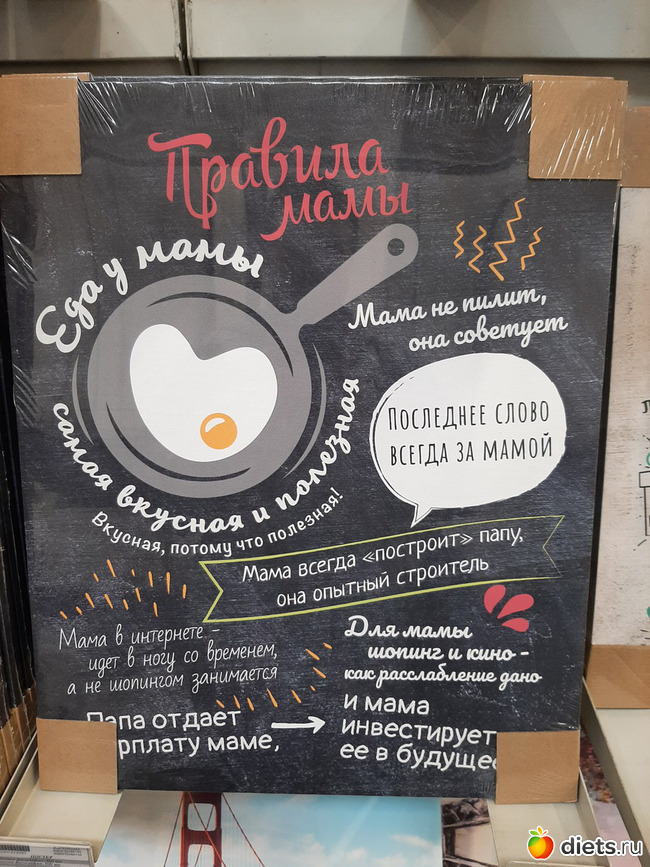 Правила
мамы
Еда у мамы
самая вкусная и полезная
Вкусная, потому что полезная!
Мама не пилит,
она советует
Последнее слово
всегда за мамой
Мама всегда «построит» папу,
она опытный строитель
Мама в интернете -
идет в ногу со временем,
а не шопингом занимается
Для мамы
шопинг и кино -
как расслабление дано
Папа отдает
рплату маме,
и мама
инвестирует
ее в будуще
diets.ru